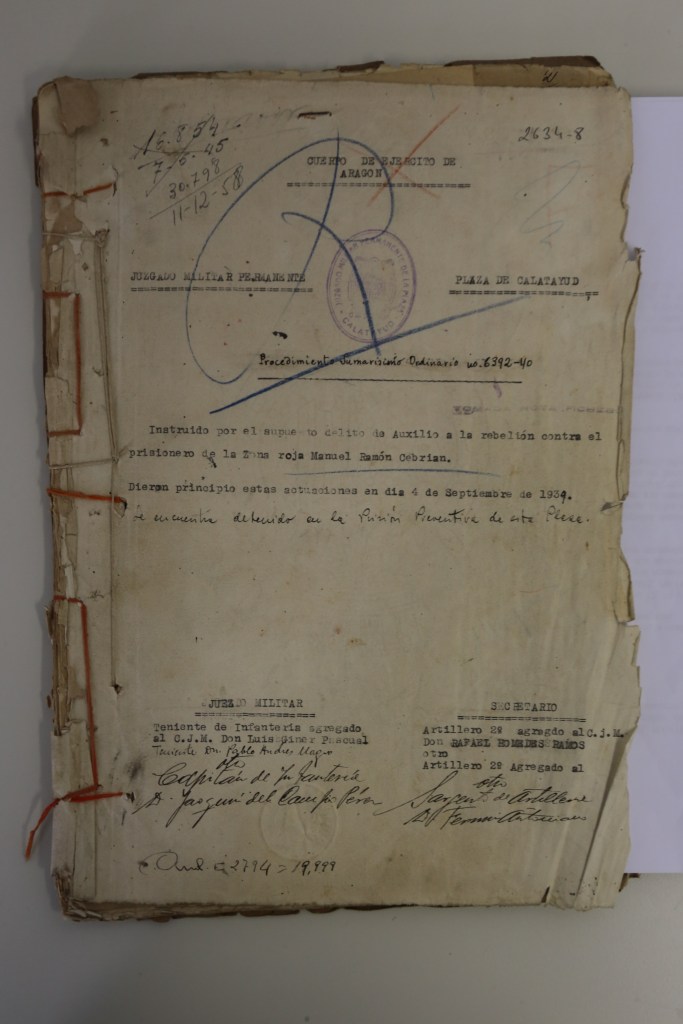 16.8.54
7-5-45
30.798
11-12-58
2634-8
CUERPO DE EJERCITO DE
ARAGON
JUZGADO MILITAR PERMANENTE
PLAZA DE CALATAYUD
CALATAYUD
Procedimiento Sumarisimo Ordinario no. 6392-40
Instruido por el supuesto delito de Auxilio a la rebelión contra el
prisionero de la Zona roja Manuel Ramón Cebrian.
Dieron principio estas actuacciones en dia 4 de Septiembre de 1939.
Se encuentra detenido en la Prisión Preventiva de esta Plaza.
JUEZIO MILITAR
SECRETARIO
Teniente de Infanteria agregado
al C.J.M. Don Luis Giner Pascual
Teniente Don Pablo Andres
otro
Capitán de Infanteria
D. Joaquin del Campo Pérez
Artillero 2º agregdo al C.J.M.
Don RAFAEL HOMEDES RAMOS
otro
Artillero 2º Agregado al
otro
Sargento de Artilleria
D. Fermin
2794 = 19,999